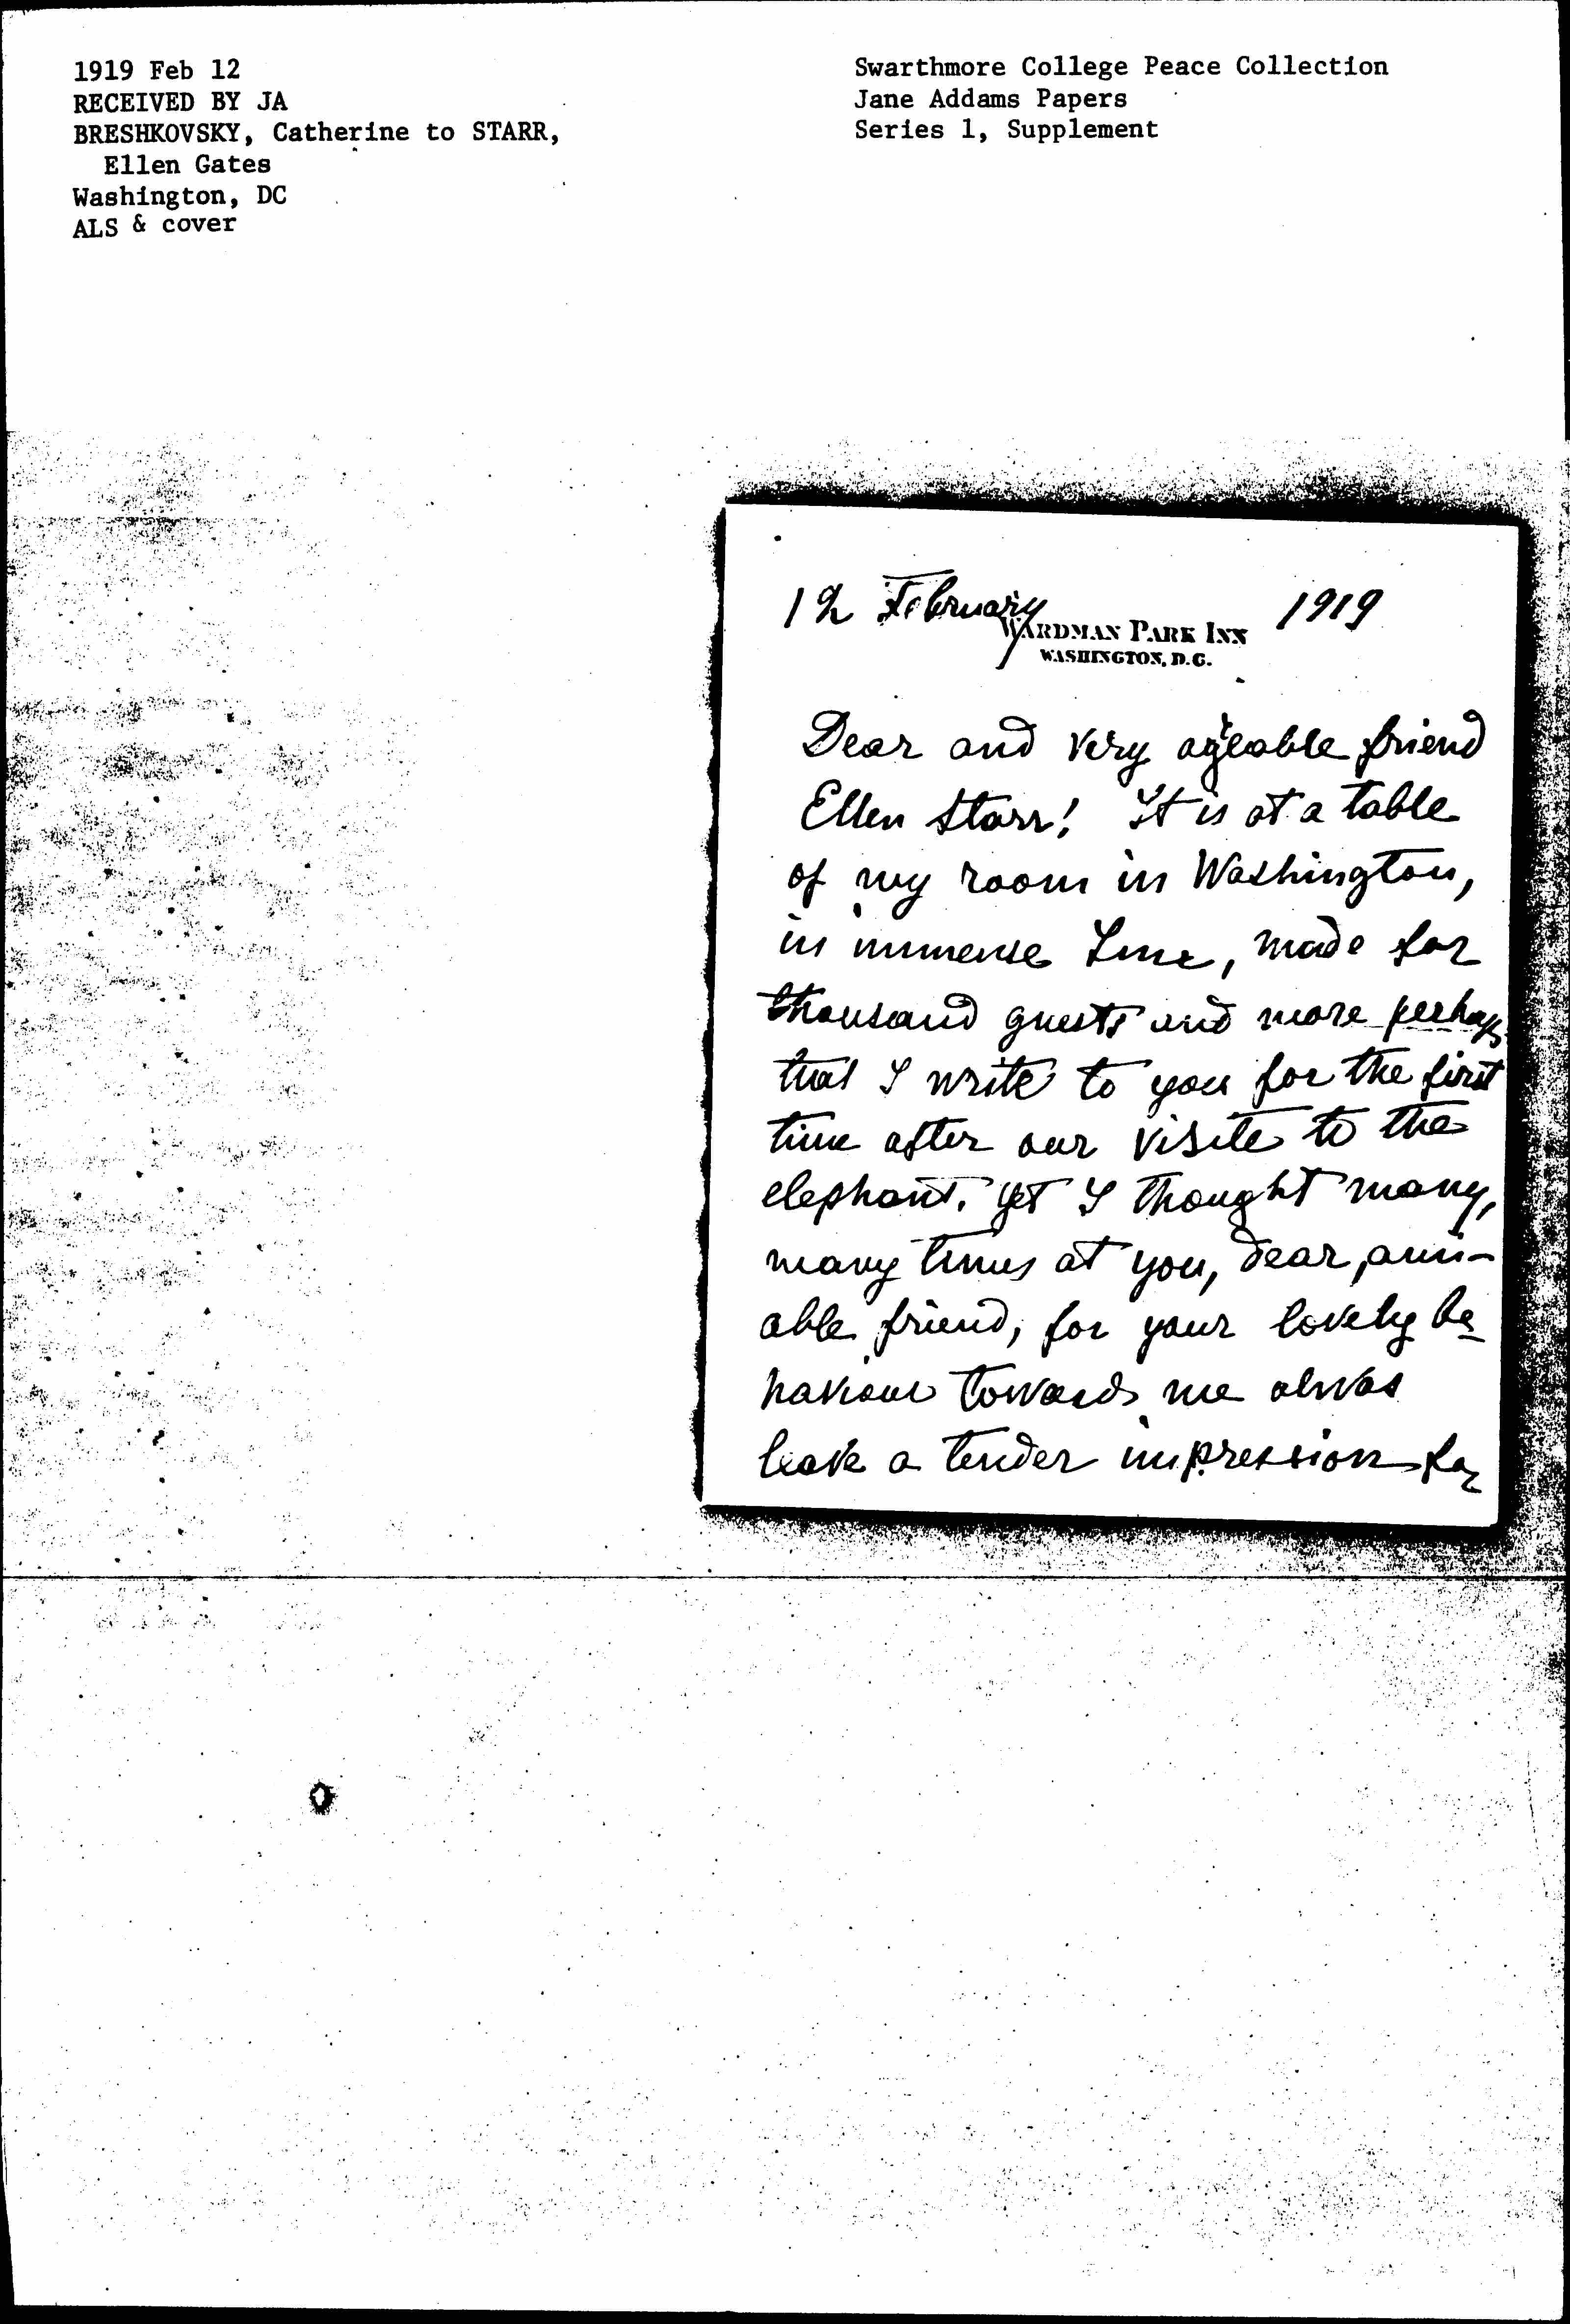 1919 Feb 12
RECEIVED BY JA
BRESHKOVSKY, Catherine to STARR,
Ellen Gates
Washington, DC
ALS & cover
Swarthmore College Peace Collection
Jane Addams Papers
Series 1, Supplement
12 February 1919
WARDMAN PARK INN
WASHINGTON, D.C.
Dear and very agreable friend
Ellen Starr! It is at a table
of my room in Washington,
in immense Inne, made for
thousand guests and more perhaps
that I write to you for the first
time after our visite to the
elephant. Yet I thought many,
many times at you, dear, ami-
able friend, for your lovely be
haviour towards me alwas
leave a tender impression for